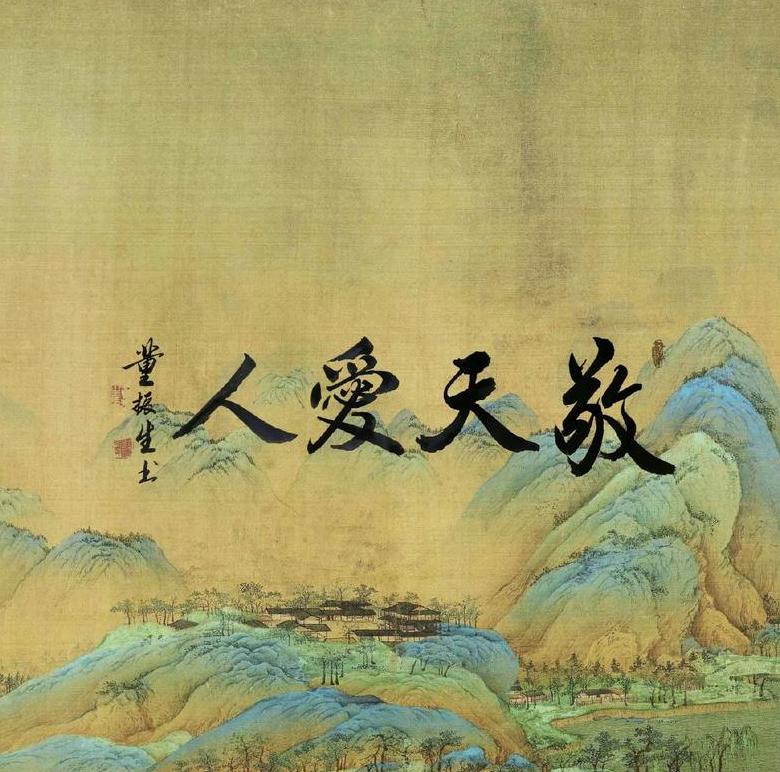 敬天愛人
董振生书